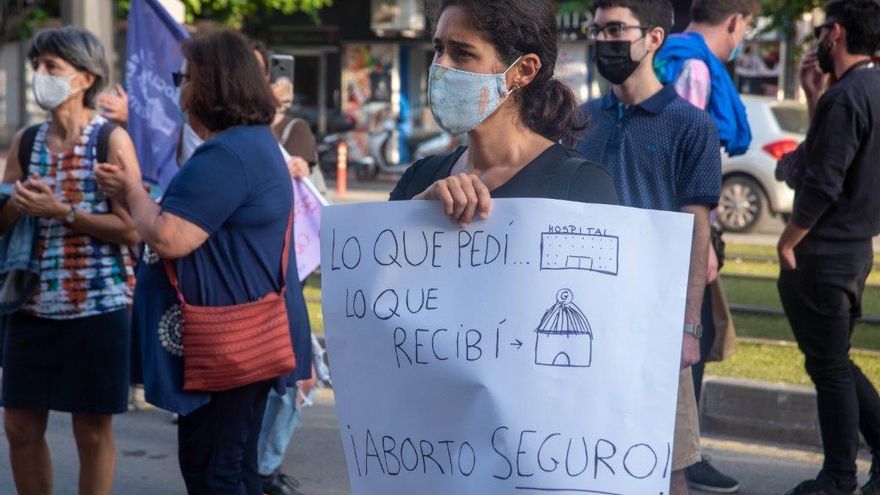 LO QUE PEDÍ...
HOSPITAL
LO QUE
RECIBÍ →
G
¡ABORTO SEGURO!